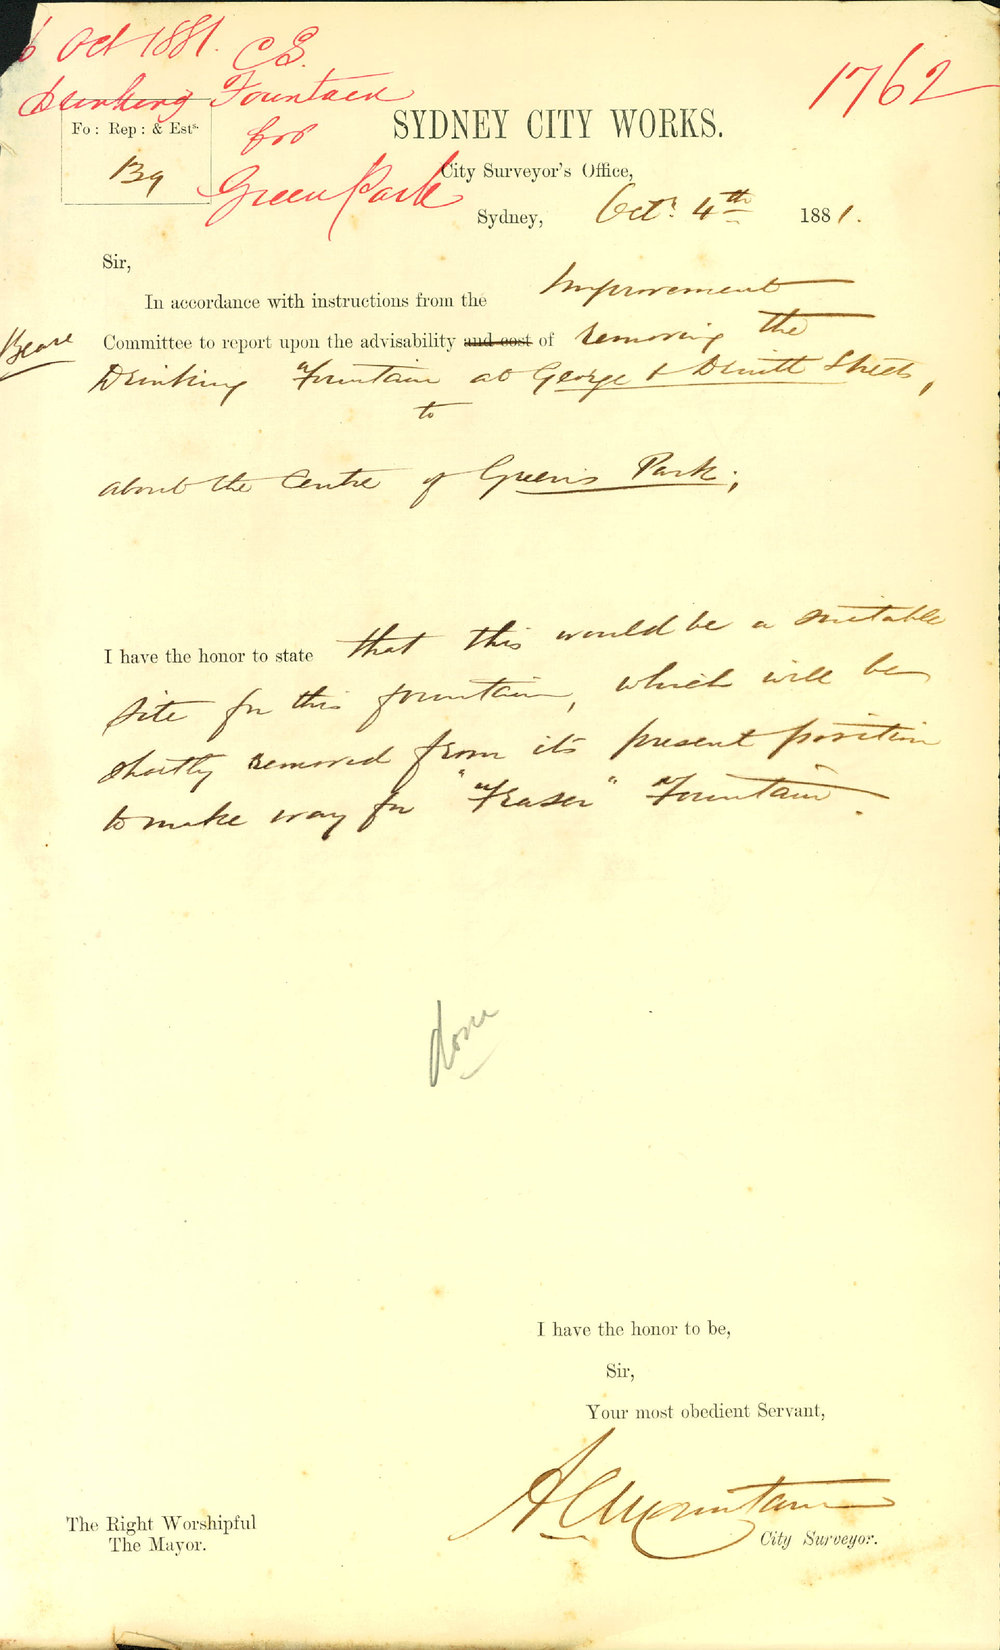 6 Oct 1881. C S.
1762
Drinking Fountain
for
Green Park
Fo: Rep: & Ests.
139
SYDNEY CITY WORKS.
City Surveyor's Office,
Sydney, Octr. 4th 1881.
Sir,
In accordance with instructions from the Improvement
Committee to report upon the advisability and cost of removing the
Drinking Fountain at George & Devitt Streets,
to
about the Centre of Green's Park;
I have the honor to state that this would be a suitable
site for this fountain, which will be
shortly removed from its present position
to make way for "Fraser" Fountain.
done
I have the honor to be,
Sir,
Your most obedient Servant,
A C Mountain
City Surveyor.
The Right Worshipful
The Mayor.